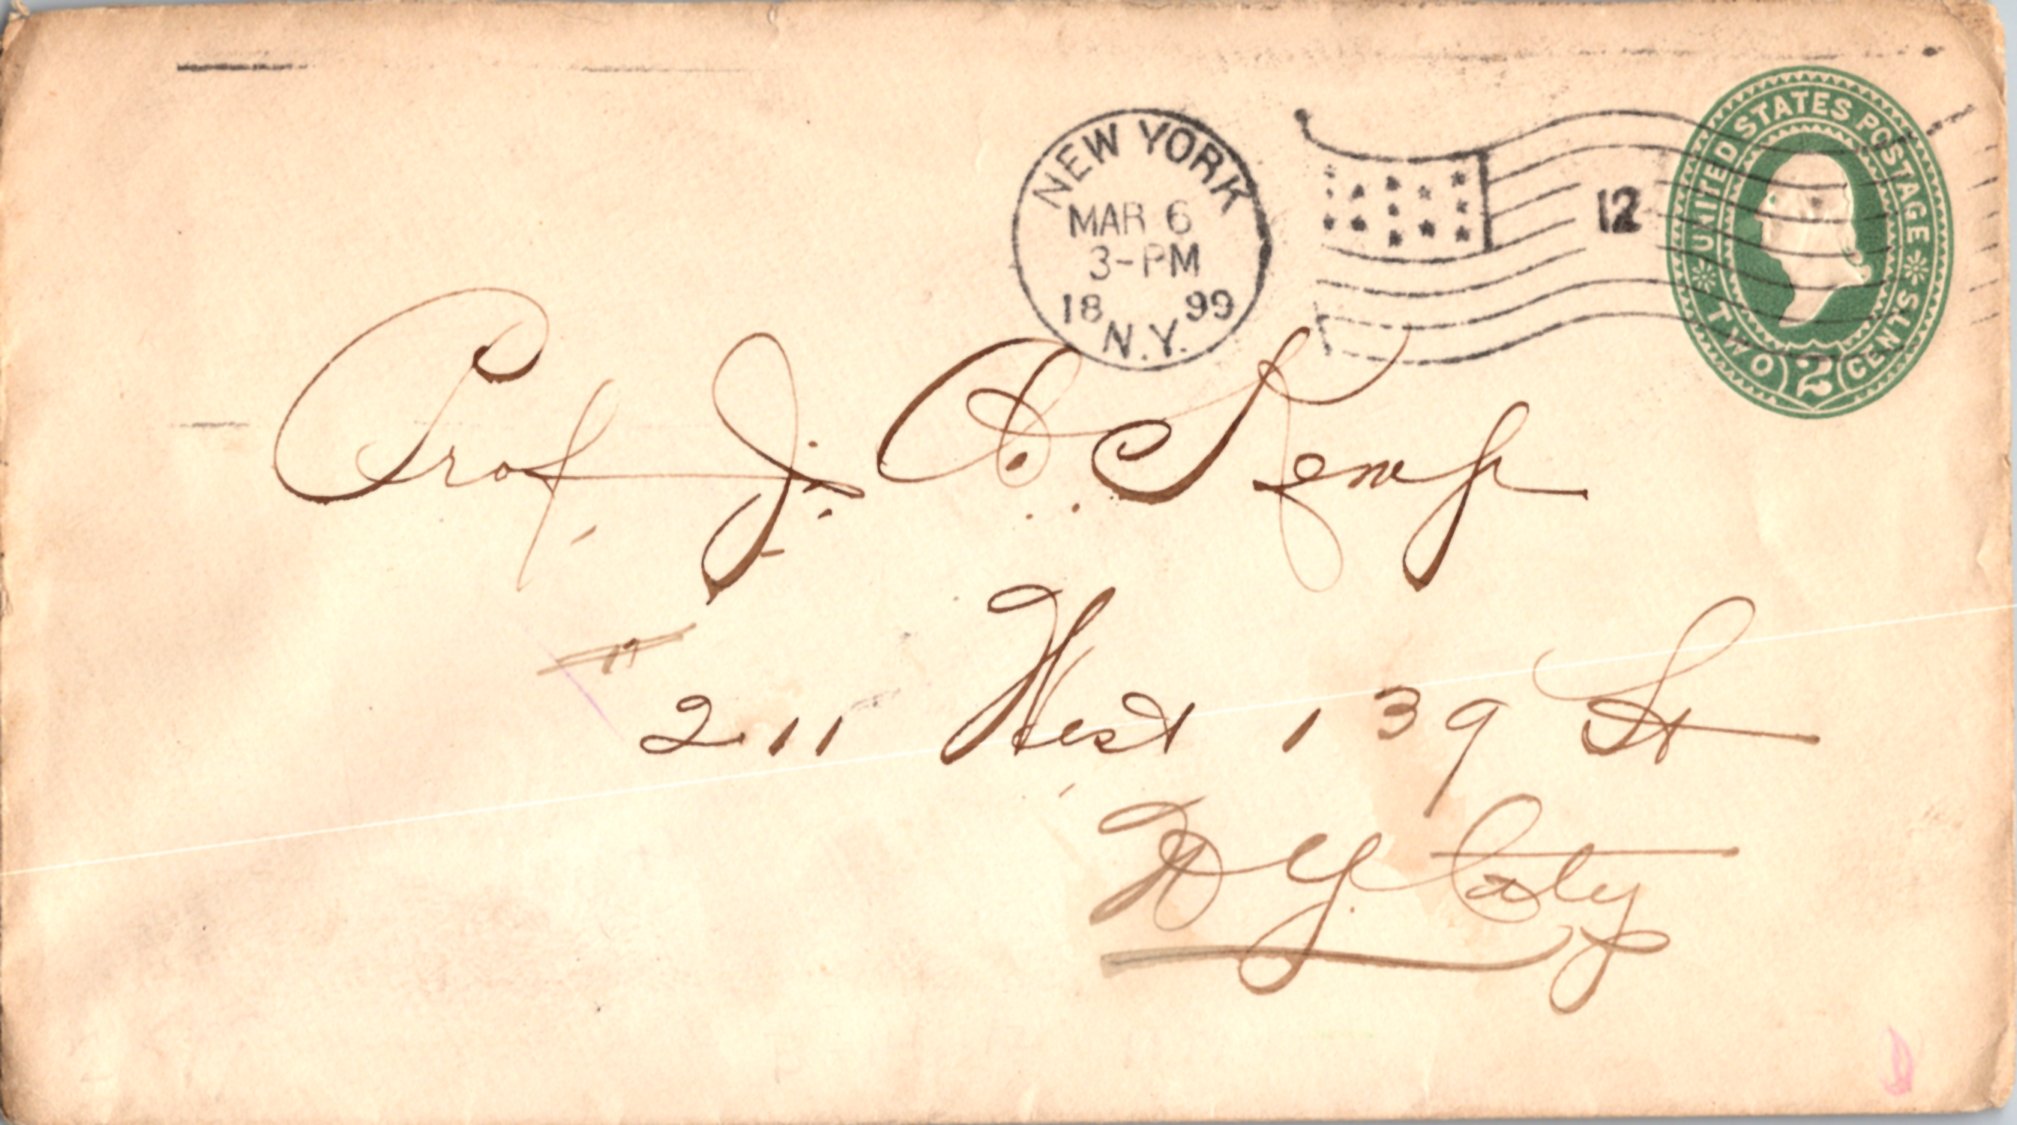 NEW YORK
MAR 6
3-PM
18 99
N.Y.
12
UNITED STATES POSTAGE
TWO 2 CENTS
Prof. J. A. Kemp
#
211 West 139 St
N Y. City